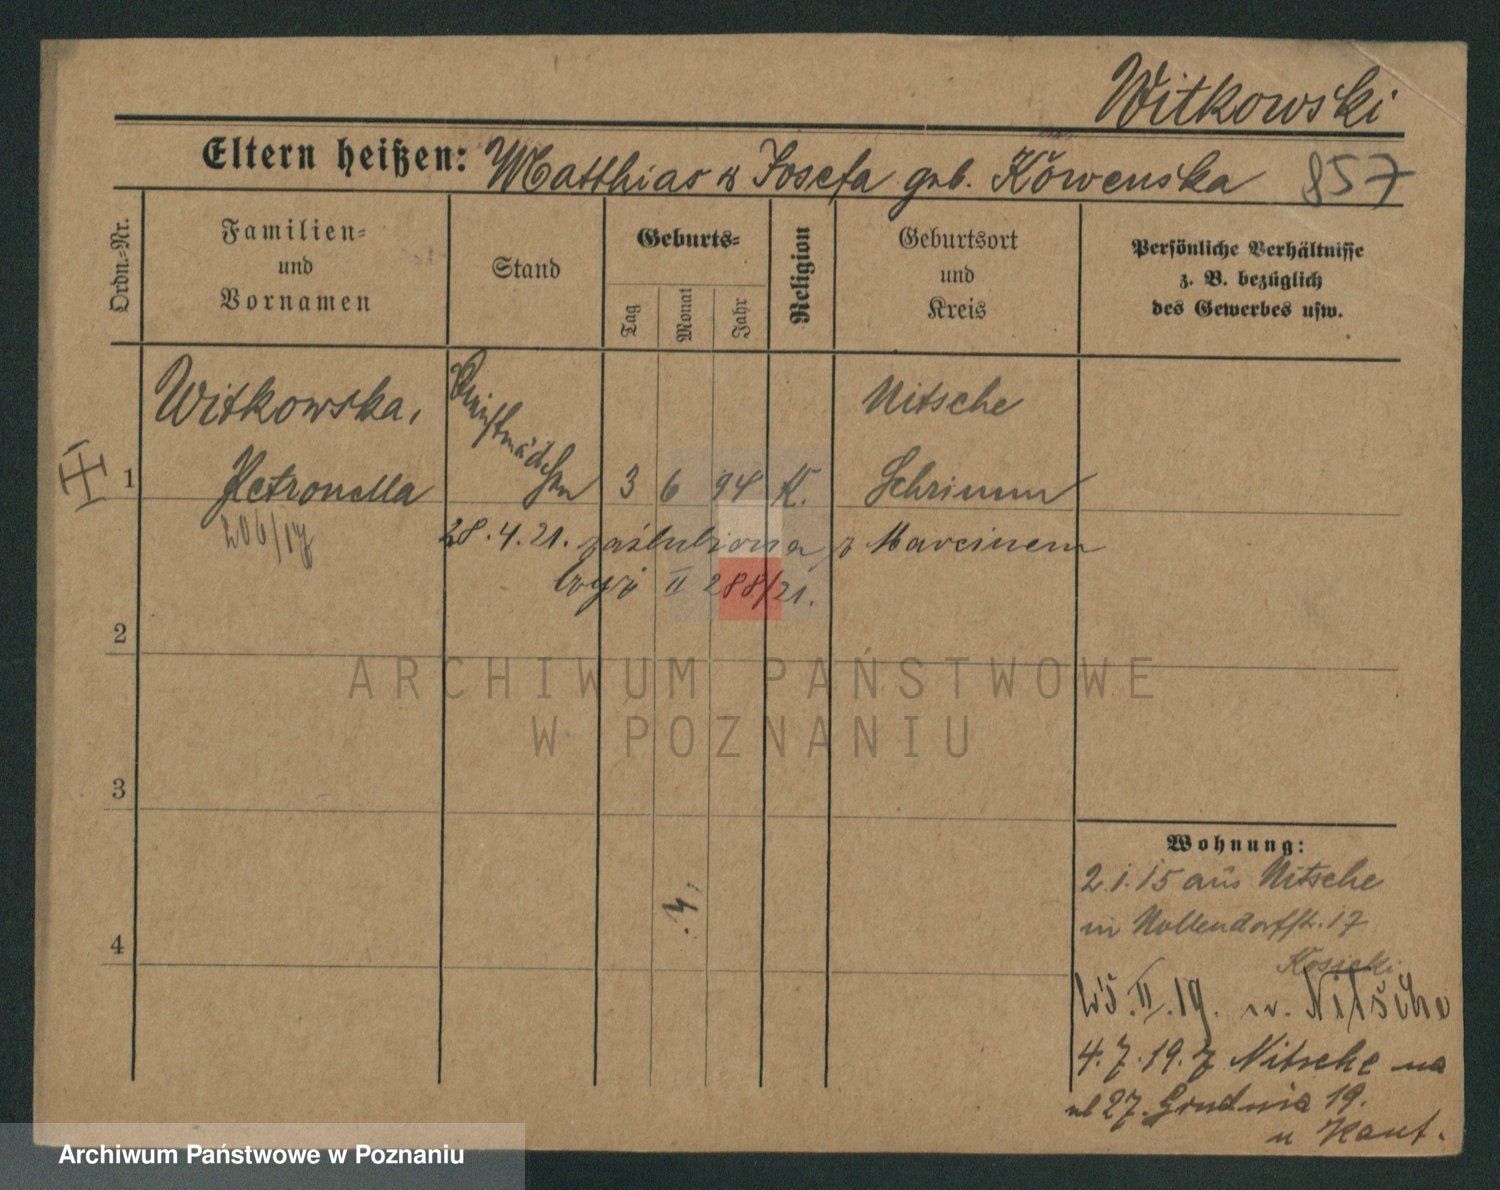 Witkowski
Eltern heißen: Matthias & Josefa geb. Köwenska 857
Ordn.-Nr.
Familien- und Vornamen
Stand
Geburts-
Tag
Monat
Jahr
Religion
Geburtsort und Kreis
Persönliche Verhältnisse z. B. bezüglich des Gewerbes usw.
Witkowska, Dienstmädchen Nitsche
1 Petronella 3 6 94 K. Schrimm
206/17
28.4.21. zaślubiona z Marcinem
II 288/21.
2
3
4
ARCHIWUM PAŃSTWOWE
W POZNANIU
Wohnung:
2.1.15 aus Nitsche
in Nollendorfstr. 17
Kosicki
25.II.19. n. Nitsche
4.7.19. z Nitsche na
ul 27. Grudnia 19.
u Kant.
Archiwum Państwowe w Poznaniu